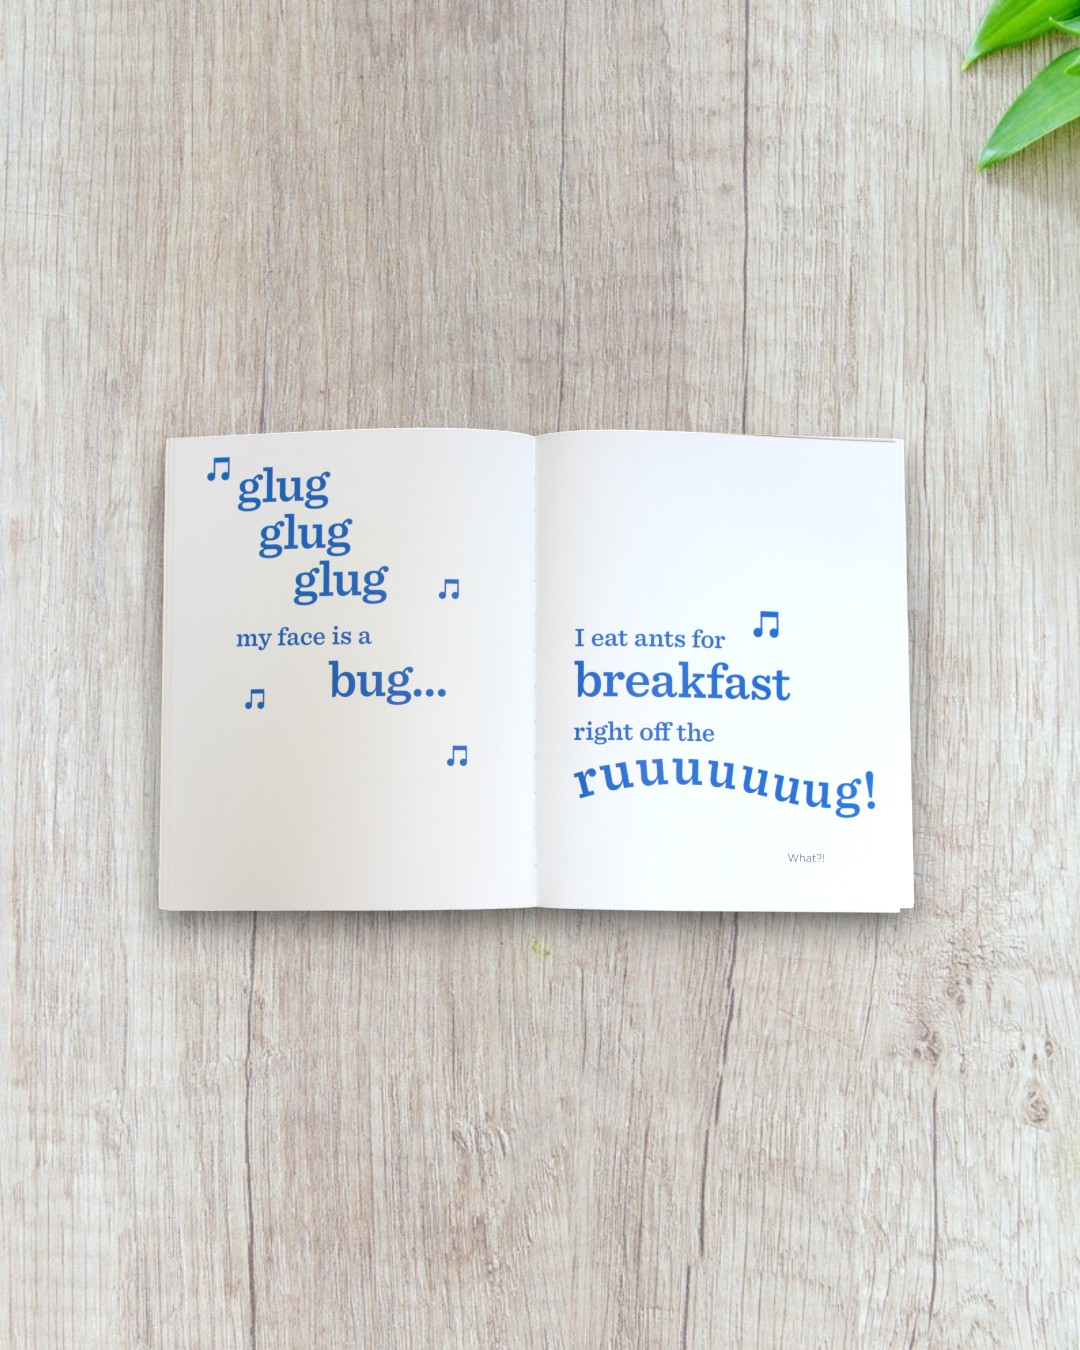 glug
glug
glug
my face is a
bug...
I eat ants for
breakfast
right off the
ruuuuuuug!
What?!